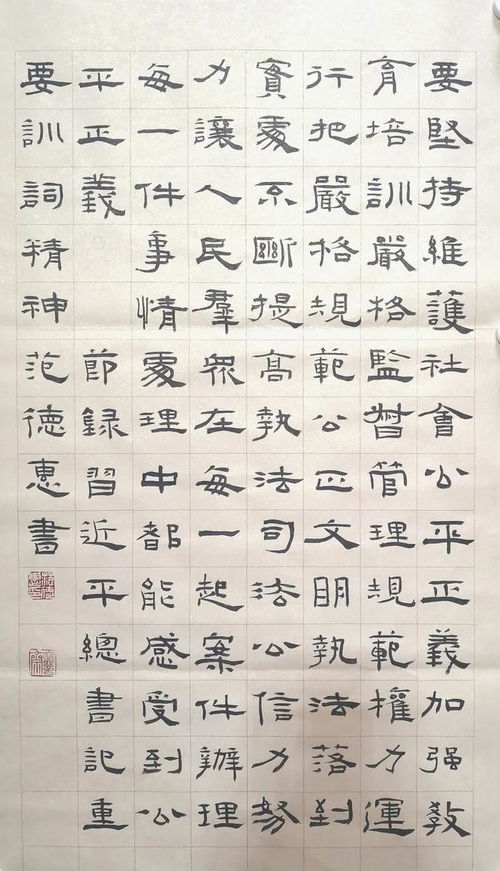 要堅持維護社會公平正義加强教
育培訓嚴格監督管理規範權力運
行把嚴格規範公正文明執法落到
實處不斷提高執法司法公信力努
力讓人民羣衆在每一起案件辦理
每一件事情處理中都能感受到公
平正義 節録習近平總書記重
要訓詞精神范德惠書